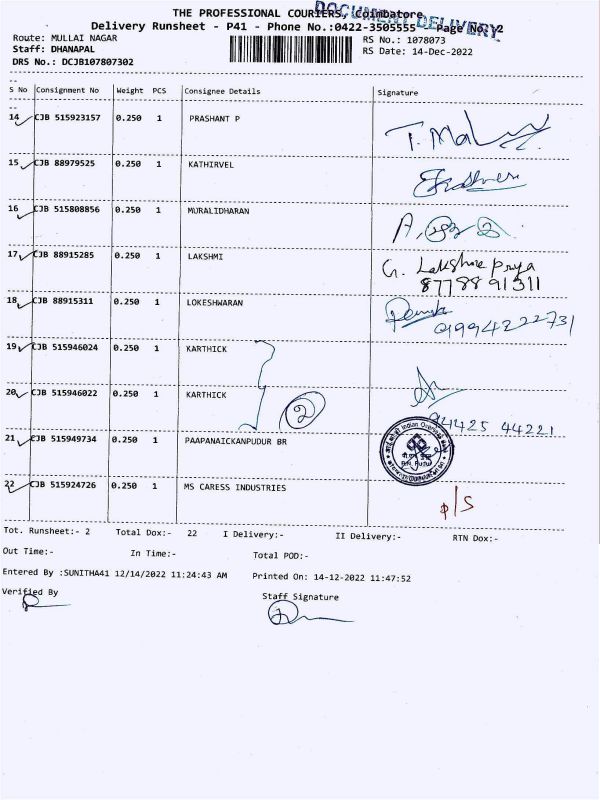 THE PROFESSIONAL COURIERS, Coimbatore
DOCUMENT DELIVERY
Delivery Runsheet - P41 - Phone No.:0422-3505555 Page No: 2
Route: MULLAI NAGAR
RS No.: 1078073
Staff: DHANAPAL
RS Date: 14-Dec-2022
DRS No.: DCJB107807302
S No Consignment No Weight PCS Consignee Details Signature
14 CJB 515923157 0.250 1 PRASHANT P
15 CJB 88979525 0.250 1 KATHIRVEL
16 CJB 515808856 0.250 1 MURALIDHARAN
17 CJB 88915285 0.250 1 LAKSHMI G. Lakshmi Priya
8778891311
18 CJB 88915311 0.250 1 LOKESHWARAN
9994222731
19 CJB 515946024 0.250 1 KARTHICK
20 CJB 515946022 0.250 1 KARTHICK 2
94425 44221
21 CJB 515949734 0.250 1 PAAPANAICKANPUDUR BR Indian Overseas
22 CJB 515924726 0.250 1 MS CARESS INDUSTRIES
Tot. Runsheet:- 2 Total Dox:- 22 I Delivery:- II Delivery:- RTN Dox:-
Out Time:- In Time:- Total POD:-
Entered By :SUNITHA41 12/14/2022 11:24:43 AM Printed On: 14-12-2022 11:47:52
Verified By
Staff Signature